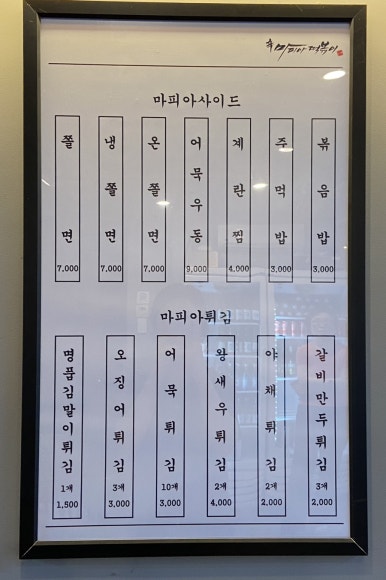 촉 마피아 떡볶이
마피아사이드
쫄면
7,000
냉쫄면
7,000
온쫄면
7,000
어묵우동
9,000
계란찜
4,000
주먹밥
3,000
볶음밥
3,000
마피아튀김
명품김말이튀김
1개
1,500
오징어튀김
3개
3,000
어묵튀김
10개
3,000
왕새우튀김
2개
4,000
야채튀김
2개
2,000
갈비만두튀김
3개
2,000